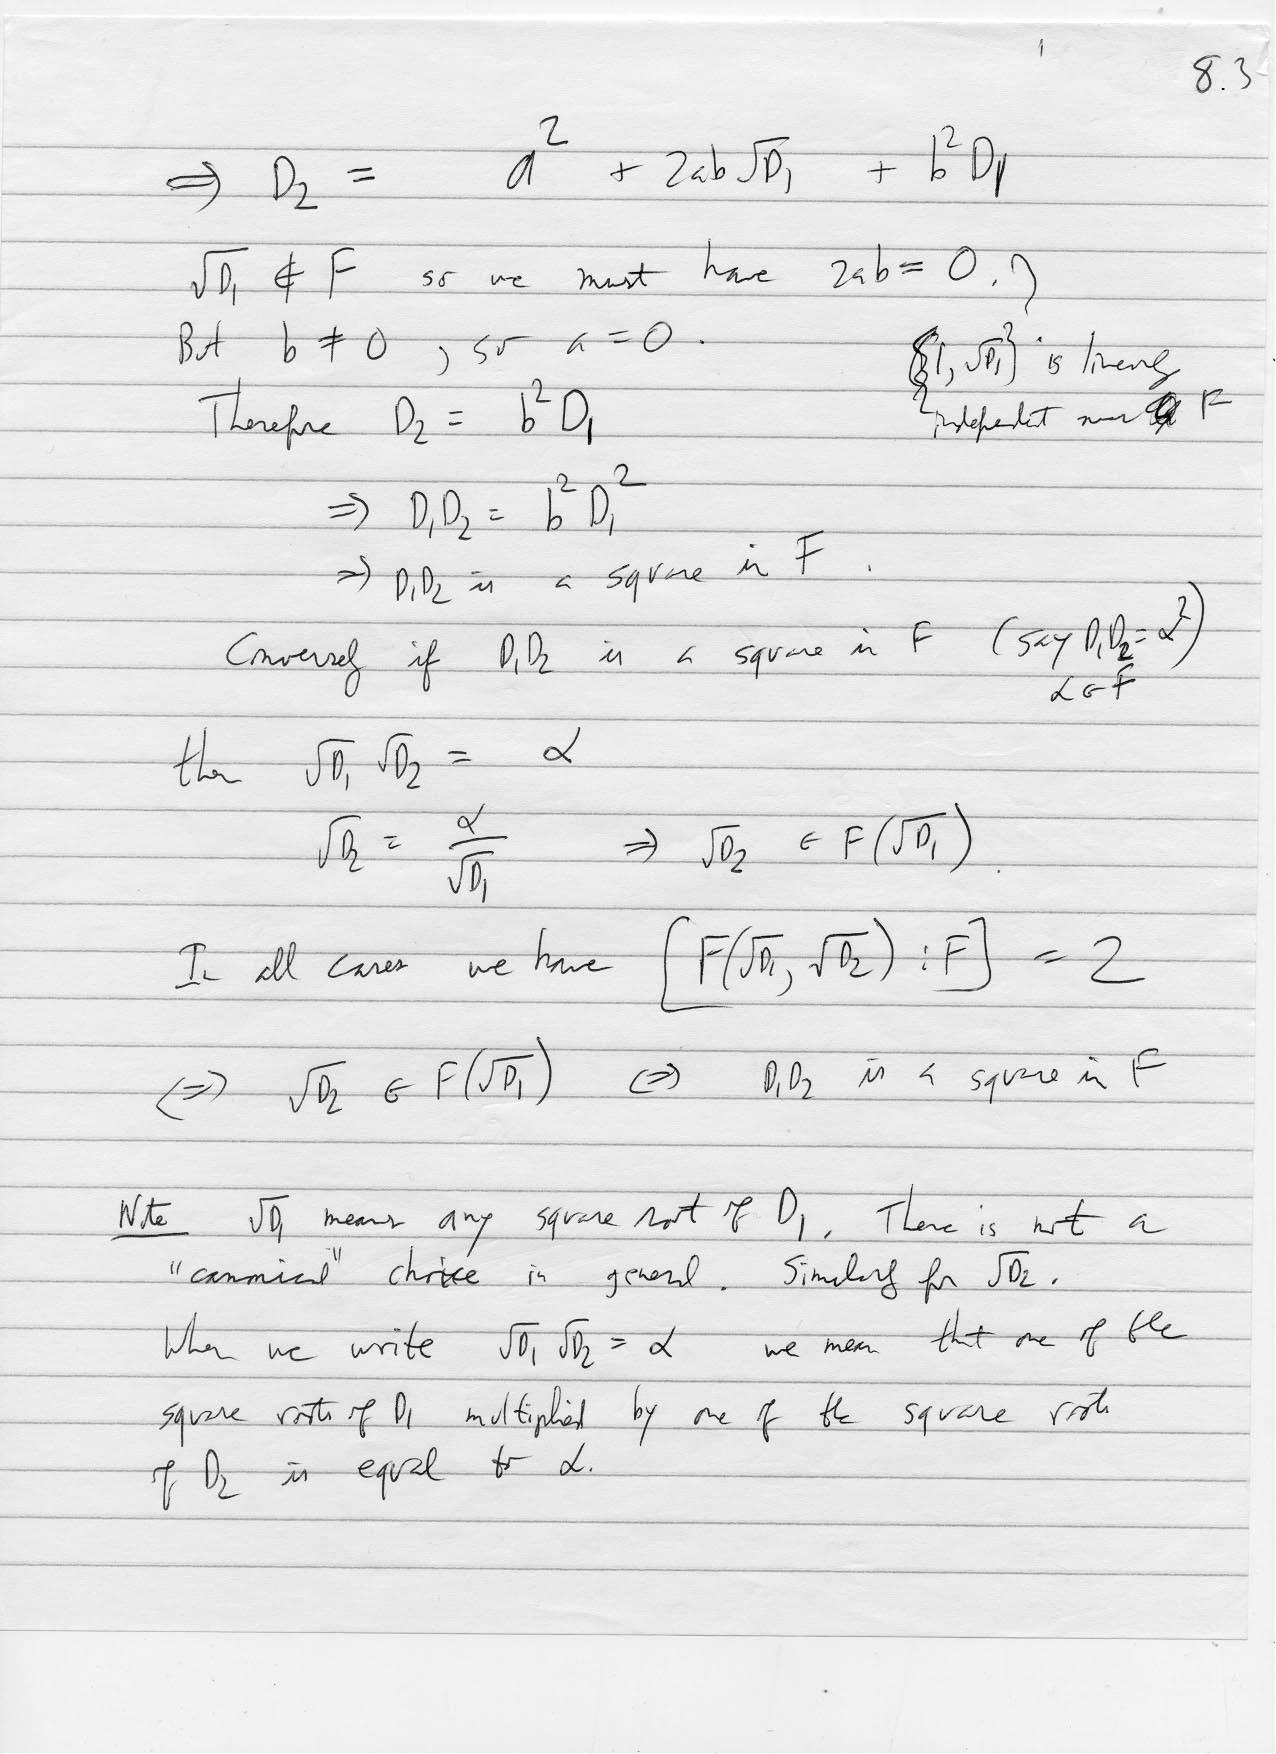 8.3
⇒ D₂ = a² + 2ab√D₁ + b²D₁
√D₁ ∉ F so we must have 2ab = 0.
But b ≠ 0, so a = 0.
{1, √D₁} is linearly
independent over F
Therefore D₂ = b²D₁
⇒ D₁D₂ = b²D₁²
⇒ D₁D₂ is a square in F.
Conversely if D₁D₂ is a square in F (say D₁D₂ = α²)
α ∈ F
then √D₁ √D₂ = α
√D₂ = α/√D₁ ⇒ √D₂ ∈ F(√D₁).
In all cases we have [F(√D₁, √D₂) : F] = 2
⇔ √D₂ ∈ F(√D₁) ⇔ D₁D₂ is a square in F
Note √D₁ means any square root of D₁. There is not a
"canonical" choice in general. Similarly for √D₂.
When we write √D₁ √D₂ = α we mean that one of the
square roots of D₁ multiplied by one of the square roots
of D₂ is equal to α.